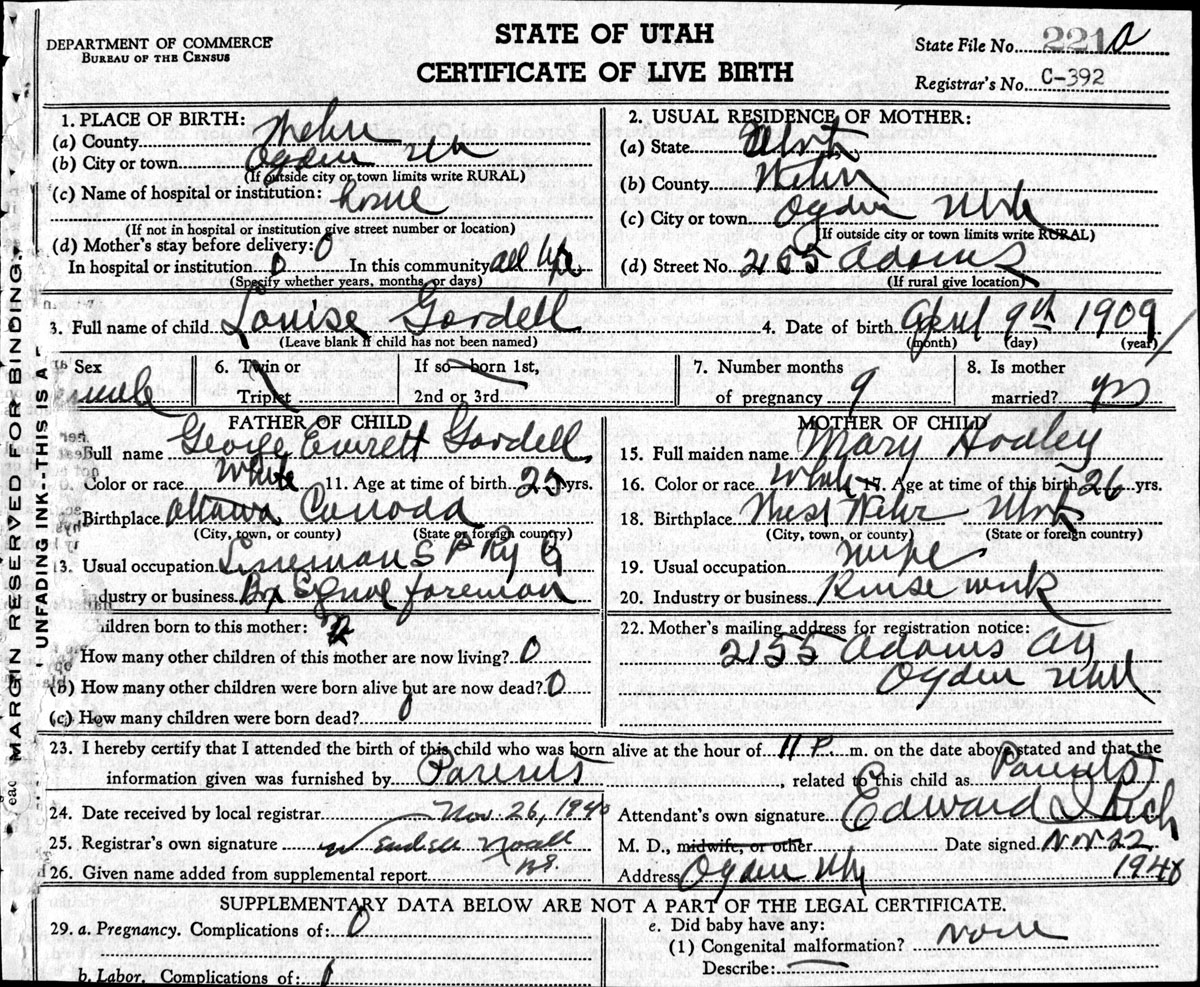 DEPARTMENT OF COMMERCE
BUREAU OF THE CENSUS
STATE OF UTAH
CERTIFICATE OF LIVE BIRTH
State File No. 221 a
Registrar's No. C-392
1. PLACE OF BIRTH:
(a) County Weber
(b) City or town Ogden
(If outside city or town limits write RURAL)
(c) Name of hospital or institution: home
(If not in hospital or institution give street number or location)
(d) Mother's stay before delivery: 0
In hospital or institution 0 In this community all life
(Specify whether years, months, or days)
2. USUAL RESIDENCE OF MOTHER:
(a) State Utah
(b) County Weber
(c) City or town Ogden Utah
(If outside city or town limits write RURAL)
(d) Street No. 2155 Adams
(If rural give location)
3. Full name of child Louise Gordell
(Leave blank if child has not been named)
4. Date of birth April 9th 1909
(month) (day) (year)
Sex
6. Twin or
Triplet
If so born 1st,
2nd or 3rd
7. Number months
of pregnancy 9
8. Is mother
married? yes
FATHER OF CHILD
Full name George Everett Gordell
Color or race White 11. Age at time of birth 25 yrs.
Birthplace Ottawa Canada
(City, town, or county) (State or foreign country)
13. Usual occupation Lineman S P Ry
Industry or business foreman
MOTHER OF CHILD
15. Full maiden name Mary
16. Color or race White 17. Age at time of this birth 26 yrs.
18. Birthplace West Weber Utah
(City, town, or county) (State or foreign country)
19. Usual occupation
20. Industry or business work
Children born to this mother:
How many other children of this mother are now living? 0
(b) How many other children were born alive but are now dead? 0
(c) How many children were born dead? 0
22. Mother's mailing address for registration notice:
2155 Adams
Ogden Utah
23. I hereby certify that I attended the birth of this child who was born alive at the hour of 11 P. m. on the date above stated and that the
information given was furnished by Parents, related to this child as Parents
24. Date received by local registrar Nov. 26, 1940
25. Registrar's own signature Wendell Noall
26. Given name added from supplemental report
Attendant's own signature Edward I Rich
M. D., midwife, or other Date signed Nov 22
Address Ogden 1940
SUPPLEMENTARY DATA BELOW ARE NOT A PART OF THE LEGAL CERTIFICATE.
29. a. Pregnancy. Complications of: 0
b. Labor. Complications of:
e. Did baby have any:
(1) Congenital malformation? none
Describe:
MARGIN RESERVED FOR BINDING
UNFADING INK--THIS IS A